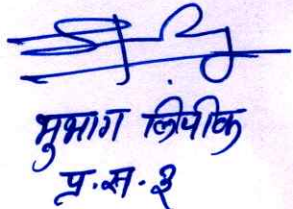 मुभाग लिपीक
प्र.स.३